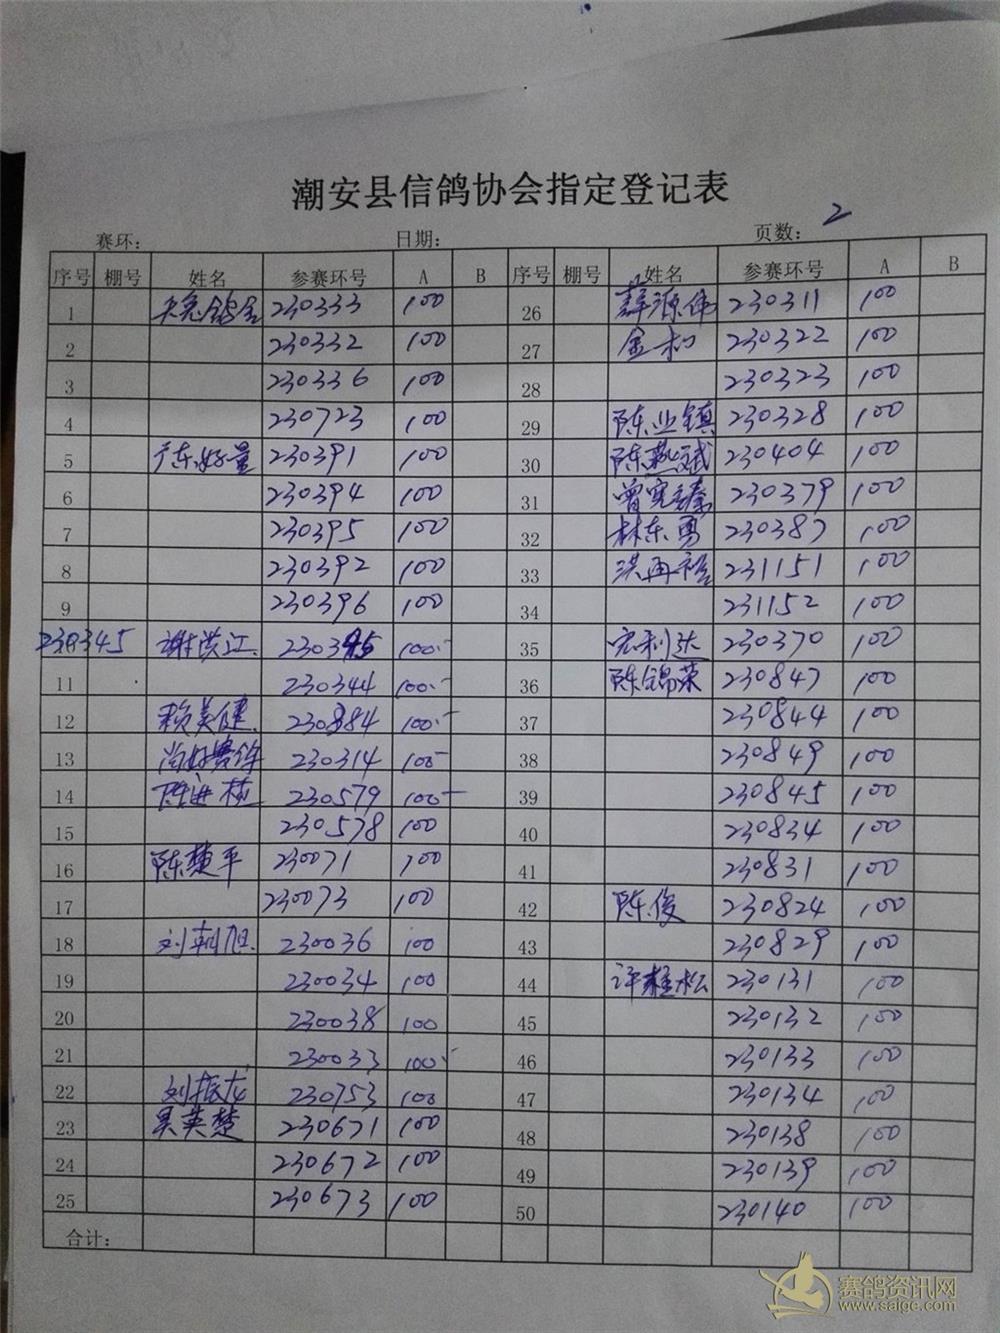 潮安县信鸽协会指定登记表
赛环： 日期： 页数： 2
序号 棚号 姓名 参赛环号 A B 序号 棚号 姓名 参赛环号 A B
1 230333 100 26 薛源伟 230311 100
2 230332 100 27 金和 230322 100
3 230336 100 28 230323 100
4 230723 100 29 陈业镇 230328 100
5 陈好量 230391 100 30 陈 斌 230404 100
6 230394 100 31 曾宪 230379 100
7 230395 100 32 林东勇 230387 100
8 230392 100 33 洪再裕 231151 100
9 230396 100 34 231152 100
230345 谢洪江 230345 100.- 35 宏利达 230370 100
11 230344 100.- 36 陈锦荣 230847 100
12 赖美健 230884 100.- 37 230844 100
13 尚好赛鸽 230314 100 38 230849 100
14 陈进 230579 100- 39 230845 100
15 230578 100 40 230834 100
16 陈楚平 230071 100 41 230831 100
17 230073 100 42 陈俊 230824 100
18 刘朝旭 230036 100 43 230829 100
19 230034 100 44 许桂松 230131 100
20 230038 100 45 230132 100
21 230033 100.- 46 230133 100
22 刘振龙 230753 100 47 230134 100
23 吴英楚 230671 100 48 230138 100
24 230672 100 49 230139 100
25 230673 100 50 230140 100
合计：
赛鸽资讯网
www.saigc.com